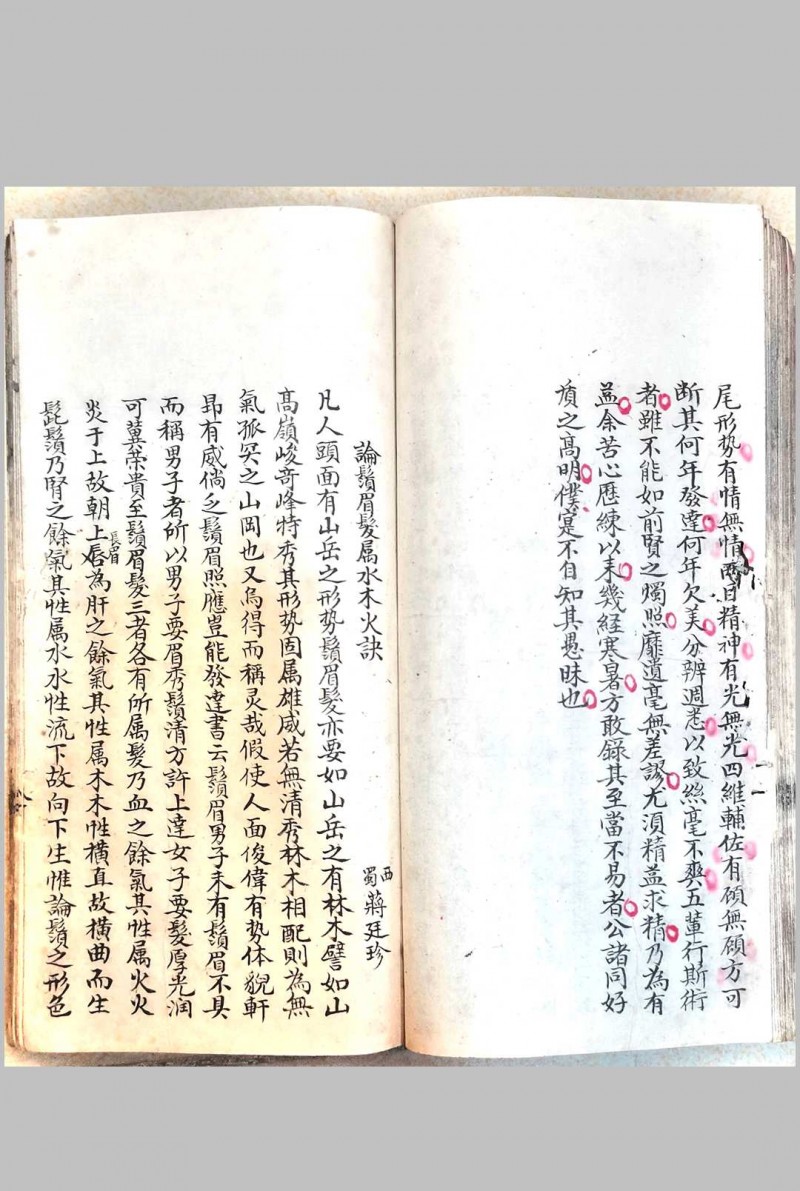 尾形势有情無情兩目精神有光無光四維輔佐有顾無顾方可
断其何年發達何年欠美分辨週悉以致絲毫不爽五葷行斯術
者雖不能如前賢之燭照靡遺毫無差謬尤湏精益求精乃為有
益余苦心歴練以来幾經寒暑方敢錄其至當不易者公諸同好
質之髙明僕寔不自知其愚昧也
論鬚眉髮属水木火訣
西蜀蔣廷珍
凡人頭面有山岳之形勢鬚眉髮亦要如山岳之有林木譬如山
高嶺峻奇峰特秀其形勢固属雄威若無清秀林木相配則為無
氣孤哭之山岡也又烏得而稱灵哉假使人面俊偉有势体貌軒
昻有威倘乏鬚眉照應豈能發達書云鬚眉男子未有鬚眉不具
而稱男子者所以男子要眉秀鬚清方許上達女子要髮厚光润
可冀榮貴至鬚眉髮三者各有所属髮乃血之餘氣其性属火火
炎于上故朝上長眉為肝之餘氣其性属木木性橫直故橫曲而生
髭鬚乃腎之餘氣其性属水水性流下故向下生惟論鬚之形色